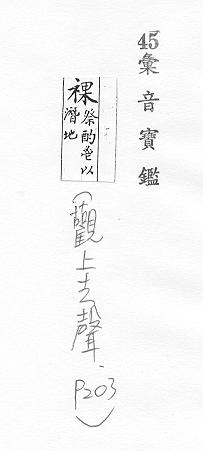 45彙音寶鑑
祼祭酌鬯以
灌地
(觀上去聲、P203)